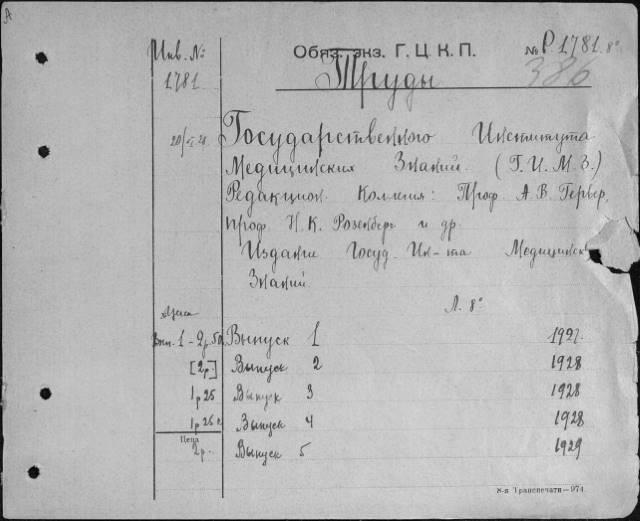 А
Инв. №
1781
Обяз. экз. Г. Ц. К. П.
№ Р. 1781. 8°
386
Труды
Государственного Института
Медицинских Знаний. (Г. И. М. З.)
Редакцион. Коллегия: Проф. А. В. Гербер,
проф. Н. К. Розенберг и др.
Издание Госуд. Ин-та Медицинск
Знаний
Л. 8°
Цена
Вып. 1 - 2р. 50 Выпуск 1 192
[2р.] Выпуск 2 1928
1р 25 Выпуск 3 1928
1р 25 к Выпуск 4 1928
Цена
2р. Выпуск 5 1929
8-я Транспечати—974.